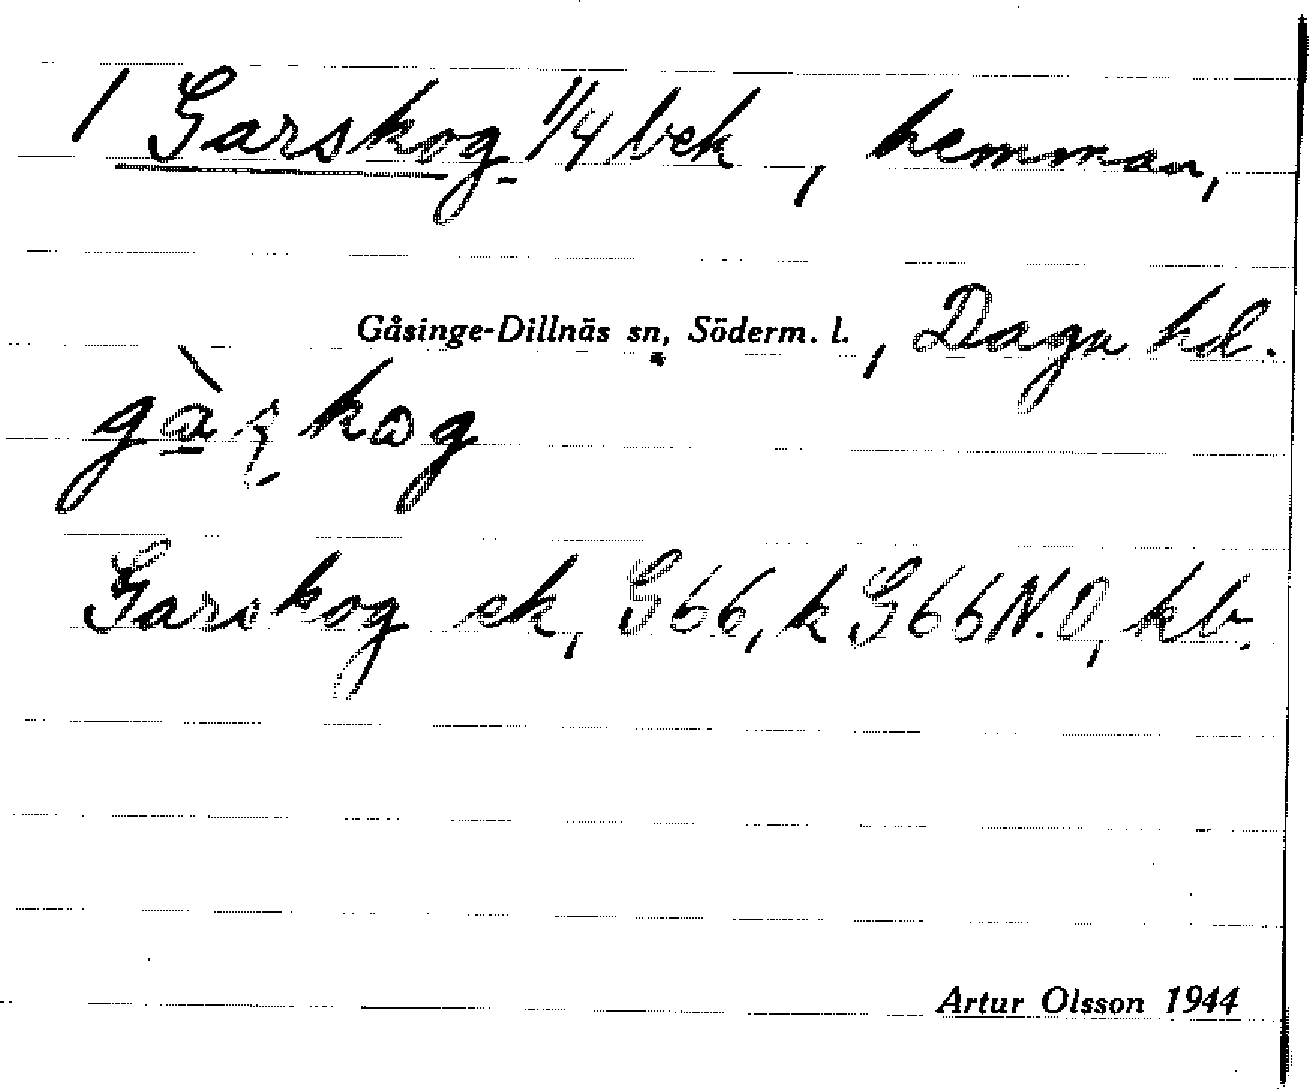 1 Garskog 1/4 bek, hemman,
Gåsinge-Dillnäs sn, Söderm. l., Daga hd.
Garskog ek, G66, k G66N.O, kb.
Artur Olsson 1944